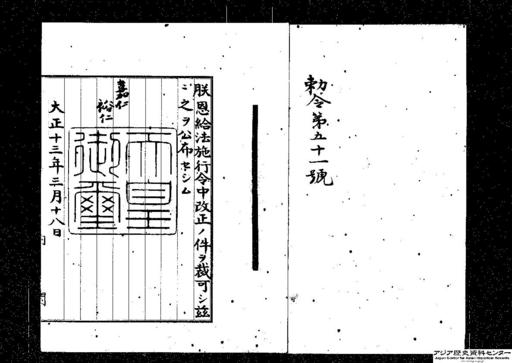 勅令第五十一號
朕恩給法施行令中改正ノ件ヲ裁可シ茲
ニ之ヲ公布セシム
嘉仁
裕仁
天皇
御璽
大正十三年三月十八日
内 閣
アジア歴史資料センター
Japan Center for Asian Historical Records